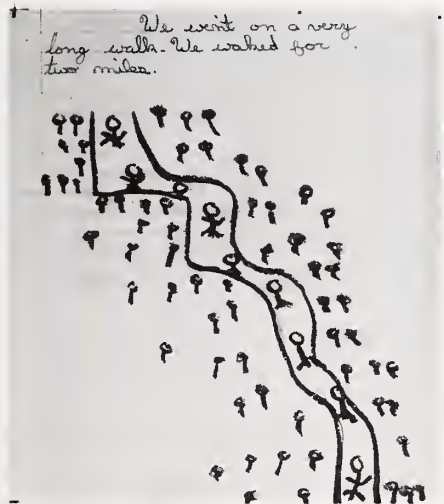 We went on a very
long walk. We waked for
two miles.